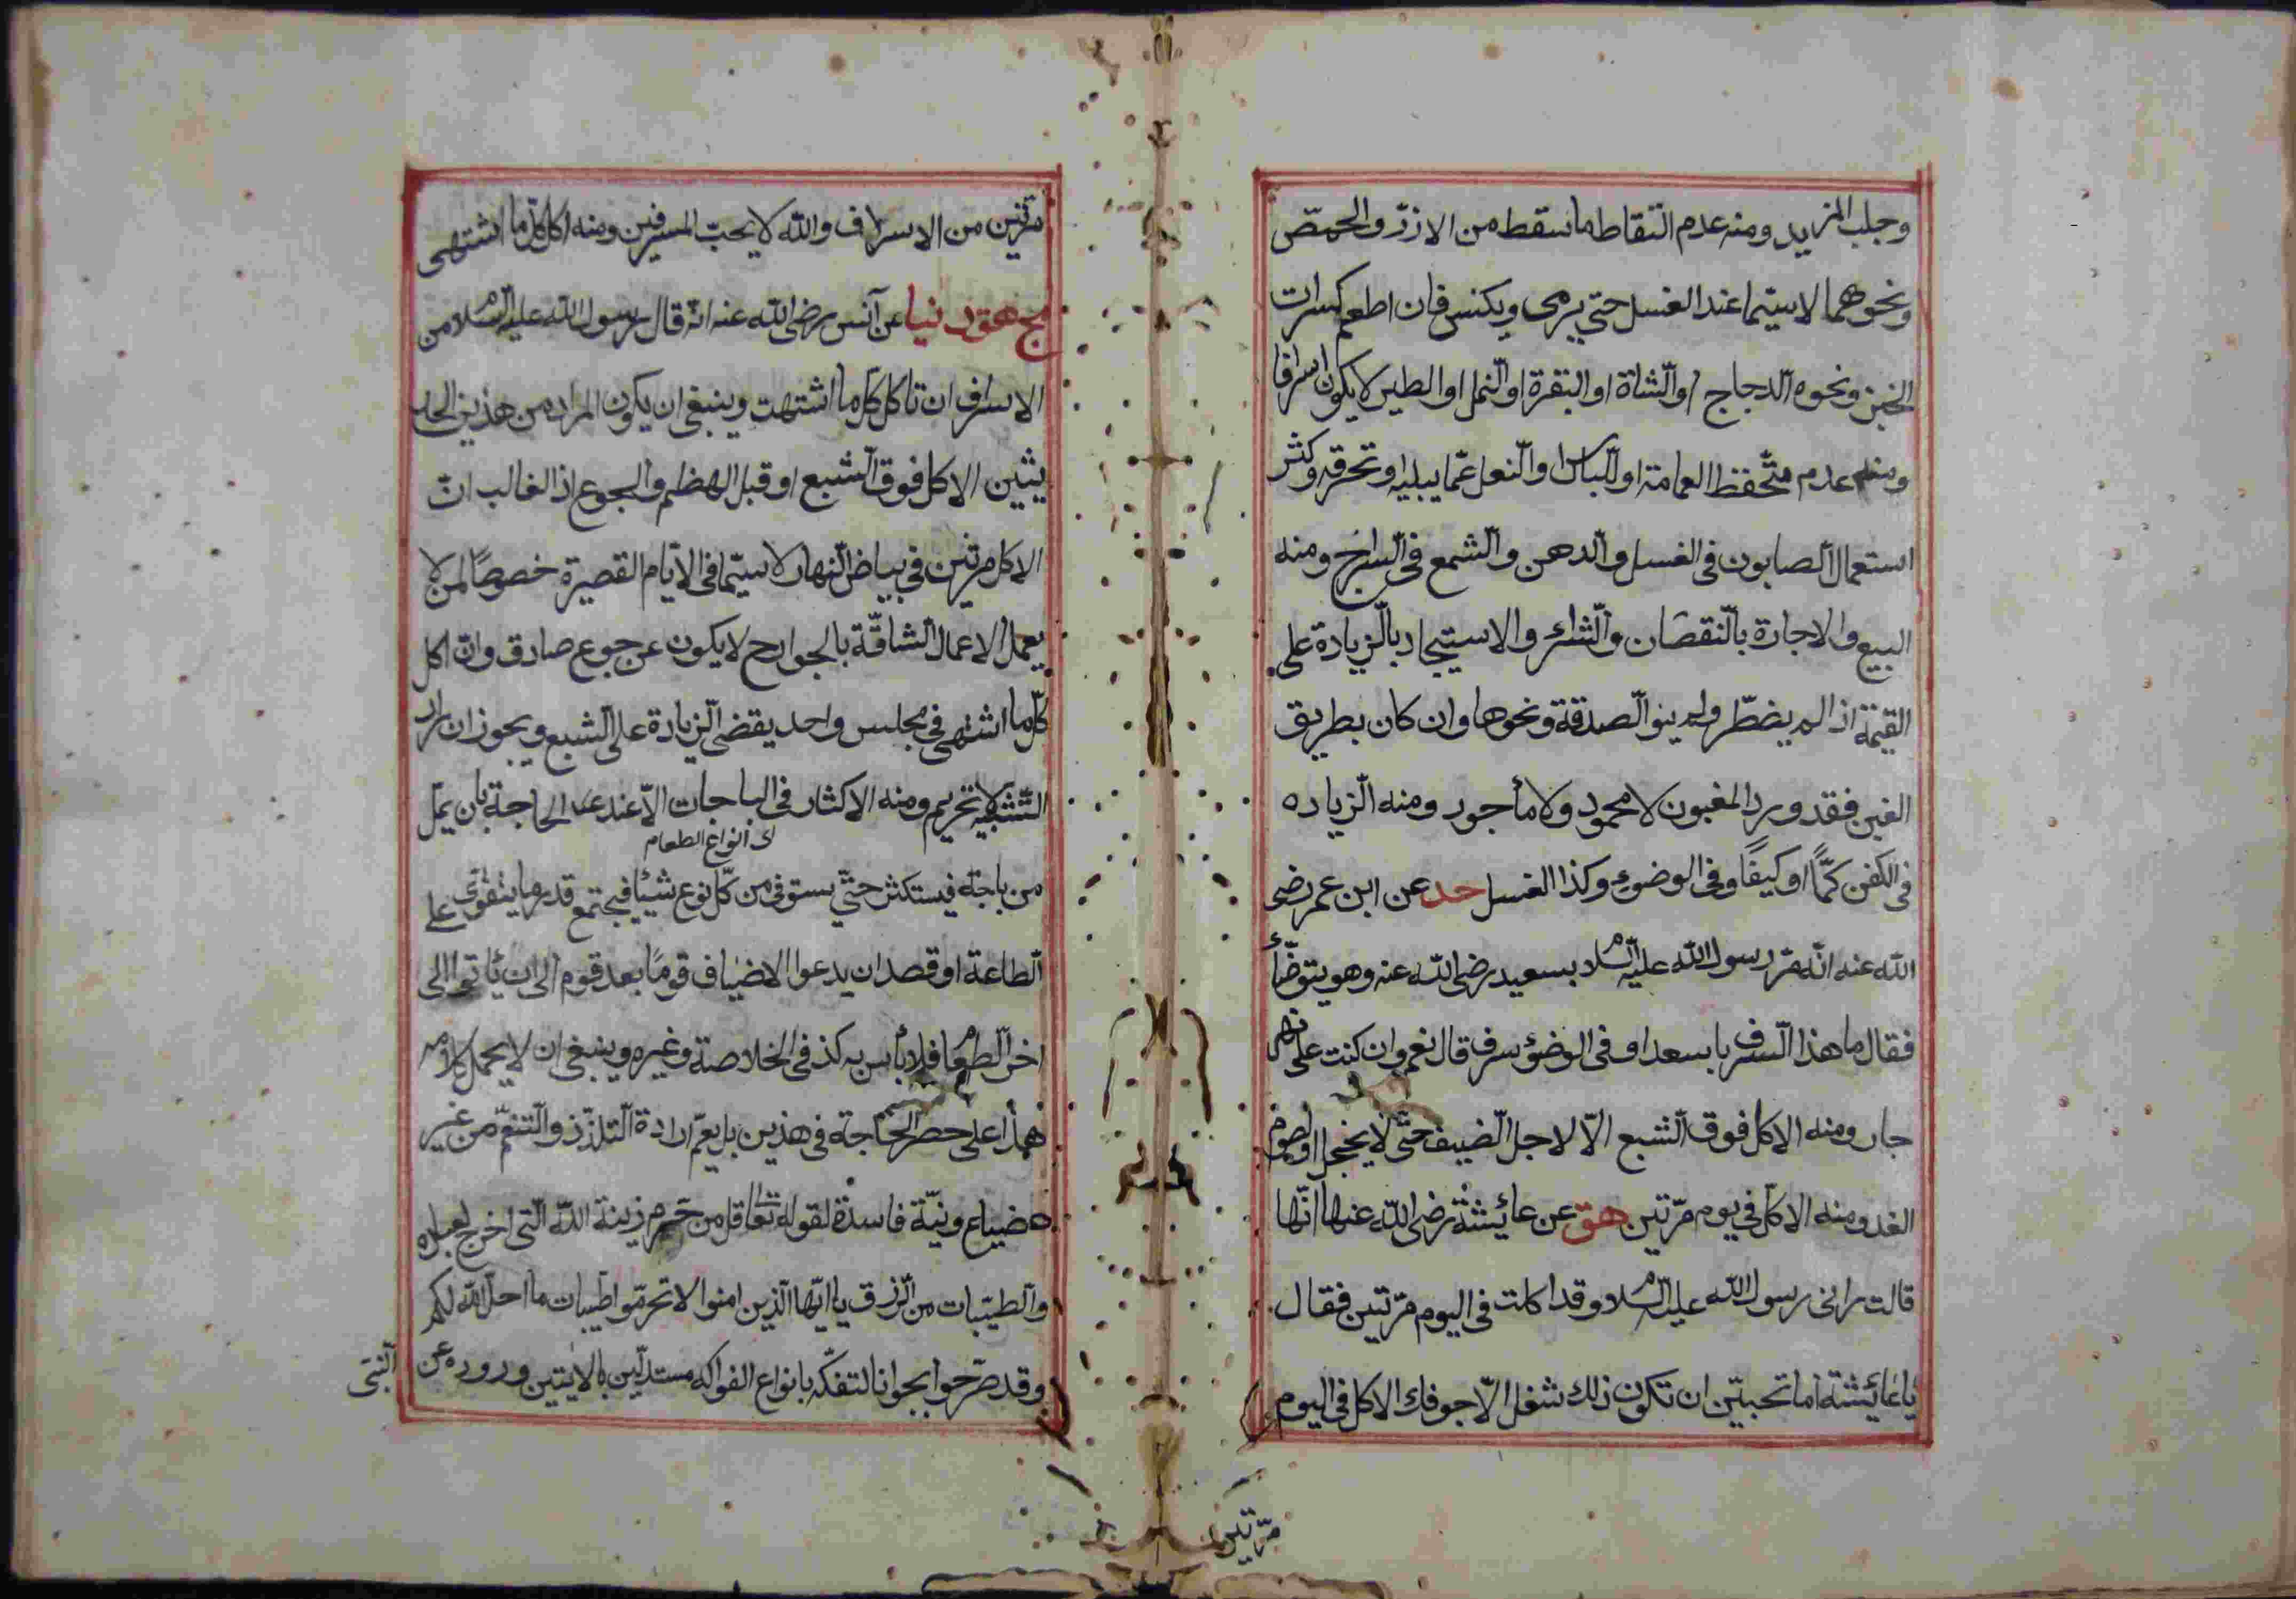 وجلب المزيد ومنه عدم التقاط ما سقط من الارز والحمص
ونحوهما لا سيما عند الغسل حتى يرمى ويكنس فان اطعم كسرات
الخبز ونحوه الدجاج او الشاة او البقرة او النمل او الطير لا يكون اسرافا
ومنه عدم تحفظ العمامة او اللباس او النعل عما يبليه او تحرقه وكثر
استعمال الصابون في الغسل والدهن والشمع في السراج ومنه
البيع والاجارة بالنقصان والشراء والاستيجار بالزيادة على
القيمة اذا لم يضطر ولم ينو الصدقة ونحوها وان كان بطريق
الغبن فقد ورد المغبون لا محمود ولا مأجور ومنه الزياده
في الكفن كمّا او كيفا وفي الوضوء وكذا الغسل حد عن ابن عمر رضى
الله عنه انه مرّ رسول الله عليه السلام بسعيد رضى الله عنه وهو يتوضأ
فقال ما هذا السرف يا سعد او في الوضوء سرف قال نعم وان كنت على نهر
جار ومنه الاكل فوق الشبع الا لاجل الضيف حتى لا يخجل او لصوم
الغد ومنه الاكل في يوم مرّتين هق عن عائيشة رضى الله عنها انّها
قالت رانى رسول الله عليه السلام وقد اكلت في اليوم مرّتين فقال
يا عائيشة اما تحبين ان تكون ذلك شغل الا جوفك الاكل في اليوم
مرّتين
مرّتين من الاسراف والله لا يحبّ المسرفين ومنه اكل كلّ ما اشتهى
مج هق دنيا عن آنس رضى الله عنه انه قال رسول الله عليه السلام من
الاسراف ان تاكل كل ما اشتهت وينبغى ان يكون المراد من هذين الحد
يثين الاكل فوق الشبع او قبل الهظم والجوع اذ الغالب انّ
الاكل مرتين في بياض النهار لا سيّما في الايّام القصيرة خصوصاً لمن لا
يعمل الاعمال الشاقّة بالجوارح لا يكون عن جوع صادق وانّ اكل
كلّ ما اشتهى في مجلس واحد يقضى الزيادة على الشبع ويجوز ان يراد
التّشبيه لا تحريم ومنه الاكثار في الباجات الّا عند الحاجة بان يملّ
اى انواع الطعام
من باجة فيستكثر حتّى يستوفى من كلّ نوع شيئا فيجتمع قدر ما يتقوّى على
الطاعة او قصد ان يدعوا الاضياف قوماً بعد قوم الى ان يأتوا الى
اخر الطعام فلا بأس به كذ في الخلاصة وغيره وينبغى ان لا يحمل كلامه
هذا على حصر الحاجة في هذين بل يعمّ ارادة التلذّذ والتنعّم من غير
ضياع ونيّة فاسدة لقوله تعا قل من حرم زينة الله الّتى اخرج لعباده
والطيّبات من الرّزق يا ايّها الّذين امنوا لا تحرّموا طيبات ما احلّ الله لكم
وقد صرّحوا بجواز التفكّه بانواع الفواكه مستدلّين بالايتين وروده عن
النّبى